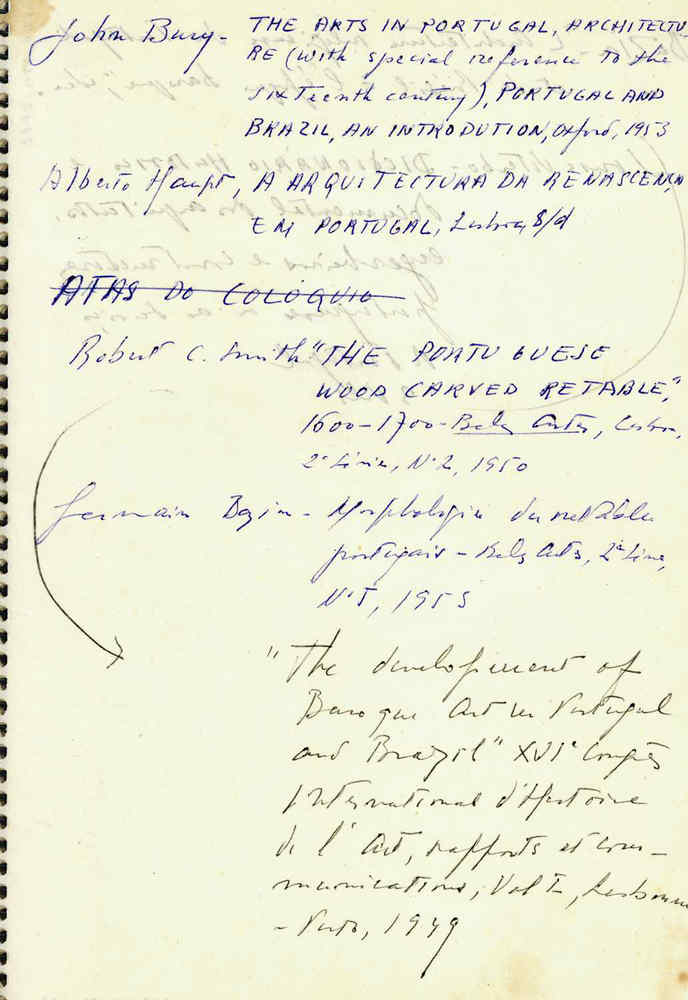 John Bury - THE ARTS IN PORTUGAL, ARCHITECTU-
RE (with special reference to the
sixteenth century), PORTUGAL AND
BRAZIL, AN INTRODUTION, Oxford, 1953
Alberto Haupt, A ARQUITECTURA DA RENASCENÇA
EM PORTUGAL, Lisboa, S/d
ATAS DO COLOQUIO
Robert C. Smith "THE PORTUGUESE
WOOD CARVED RETABLE",
1600-1700 - Belas Artes, Lisboa,
2ª Série, Nº 2, 1950
Germain Bazin - Morphologie du retable
portugais - Belas Artes, 2ª Série,
Nº 5, 1953
"The development of
Baroque Art in Portugal
and Brazil" XVIe Congrès
International d'Histoire
de l'Art, rapports et com-
munications, Vol I, Lisbonne
- Porto, 1949